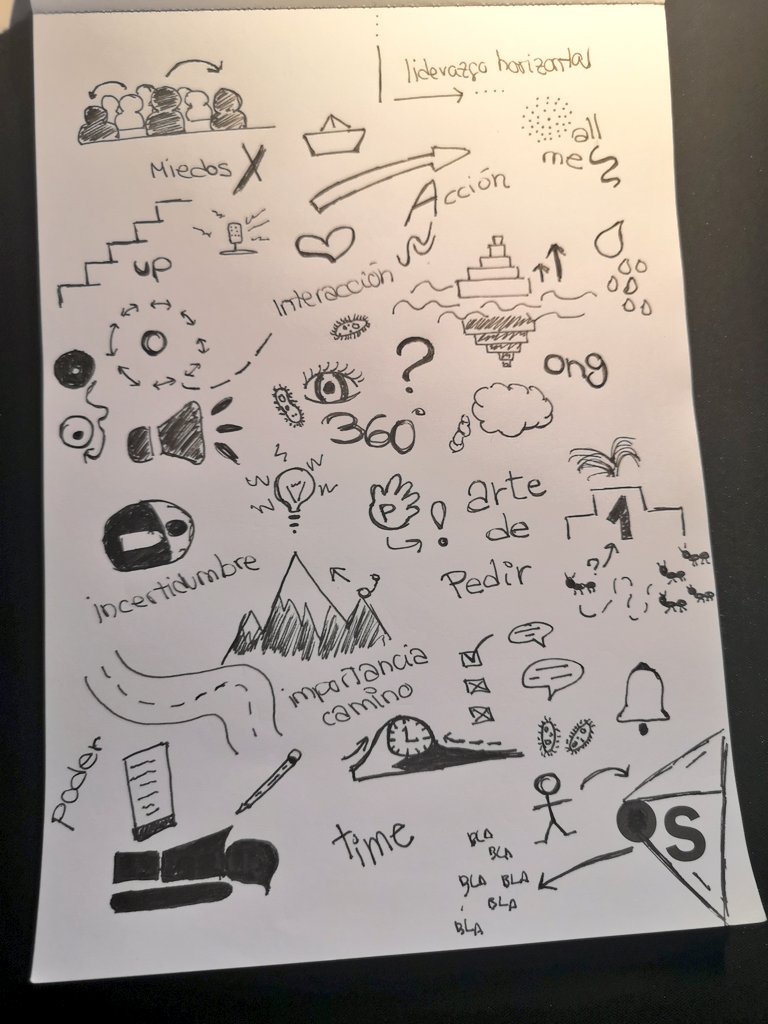 liderazgo horizontal
all
me
Miedos X
Acción
up
Interacción
?
ong
360°
P
!
arte
de
Pedir
1
incertidumbre
?
importancia
camino
Poder
time
S
BLA
BLA
BLA BLA
BLA
BLA